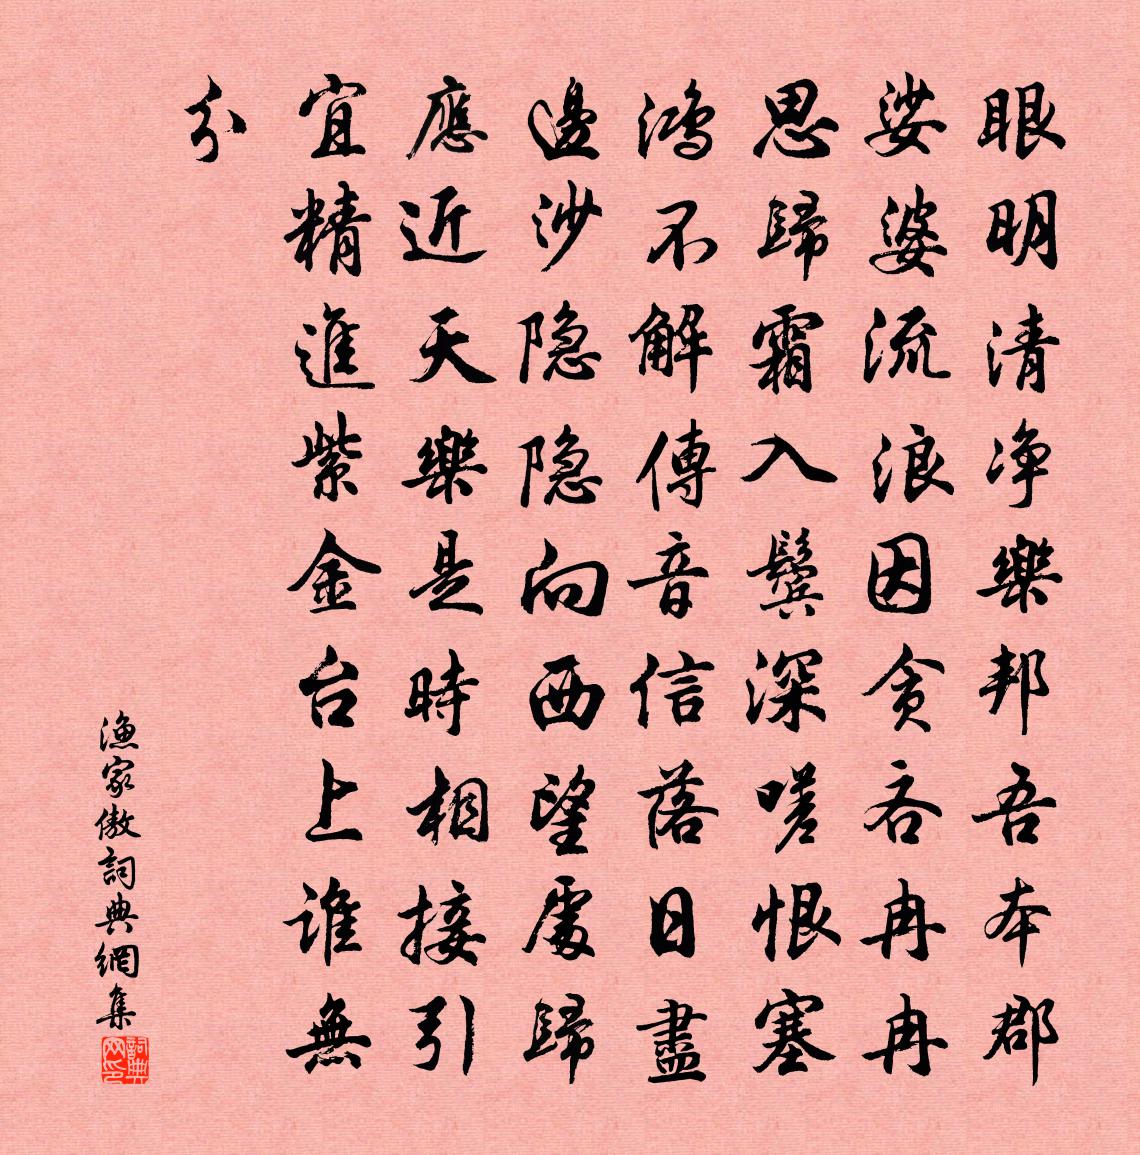 眼明清净樂邦吾本郡
娑婆流浪因贪吝冉冉
思歸霜入鬓深嗟恨塞
鸿不解傳音信落日盡
邊沙隐隐向西望處歸
應近天樂是時相接引
宜精進紫金台上谁無
分
漁家傲詞典網集
詞典网印